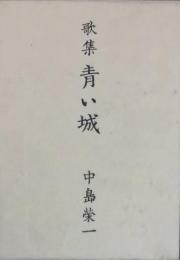 歌集 青い城
中島榮一